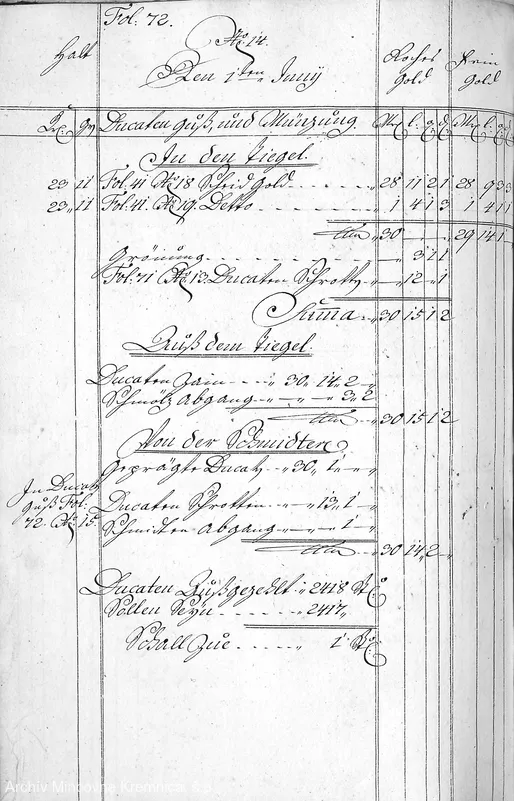 Fol: 72.
No 14.
Halt
Den 1ten Junÿ
Roches Gold
Fein Gold
Kr. gr. Ducaten guß, und Münzung. Mr. l. q. d. Mr. l. q. d.
In den Tiegel.
23 11 Fol: 41 No 18 Scheid Gold 28 11 2 1 28 9 3 3
23 11 Fol: 41. No 19. Detto 1 4 1 3 1 4 1 1
30 29 14 1
3 1 1
Fol: 71 No 13. Ducaten Schrotten 12 1
Suma 30 15 1 2
Auß dem Tiegel.
Ducaten Zain 30 14 2
Schmölz Abgang 3 2
30 15 1 2
Von der Schmidten
Geprägte Ducat 30 1
In Ducat
guß Fol:
72. No 15.
Ducaten Schrotten 13 1
Schmidten Abgang 1
30 14 2
Ducaten Außgezehlt 2418 St
Sollen Seÿn 2417
Schall Zue 1 St
Archiv Mincovne Kremnica